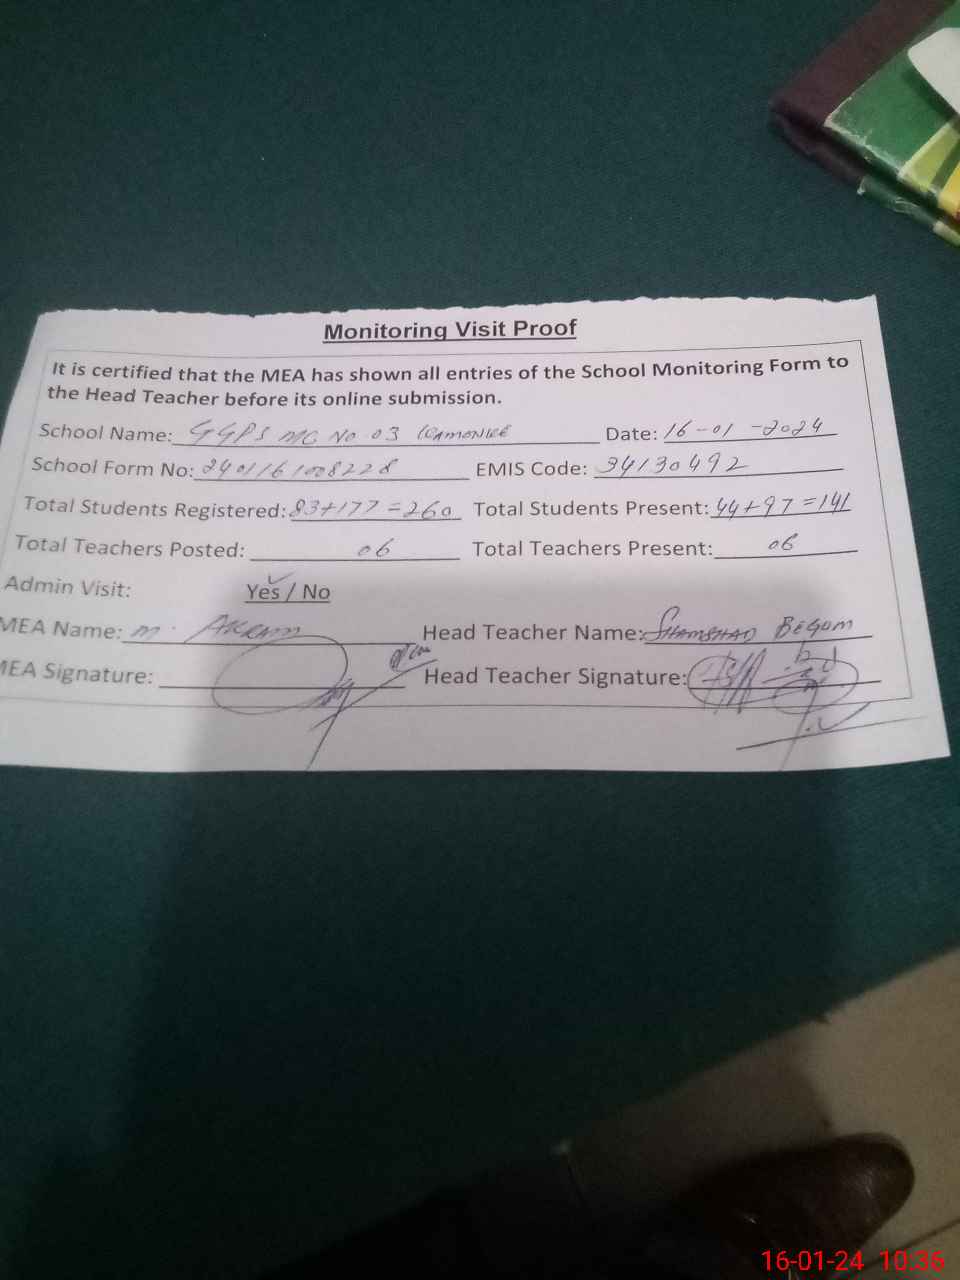 Monitoring Visit Proof
It is certified that the MEA has shown all entries of the School Monitoring Form to
the Head Teacher before its online submission.
School Name: GGPS MC No 03 Kamonke Date: 16-01-2024
School Form No: 2401161008228 EMIS Code: 34130492
Total Students Registered: 83+177=260 Total Students Present: 44+97=141
Total Teachers Posted: 06 Total Teachers Present: 06
Admin Visit: Yes / No
MEA Name: M. AKRAM Head Teacher Name: SHAMSHAD BEGUM
MEA Signature: Head Teacher Signature:
16-01-24 10:36